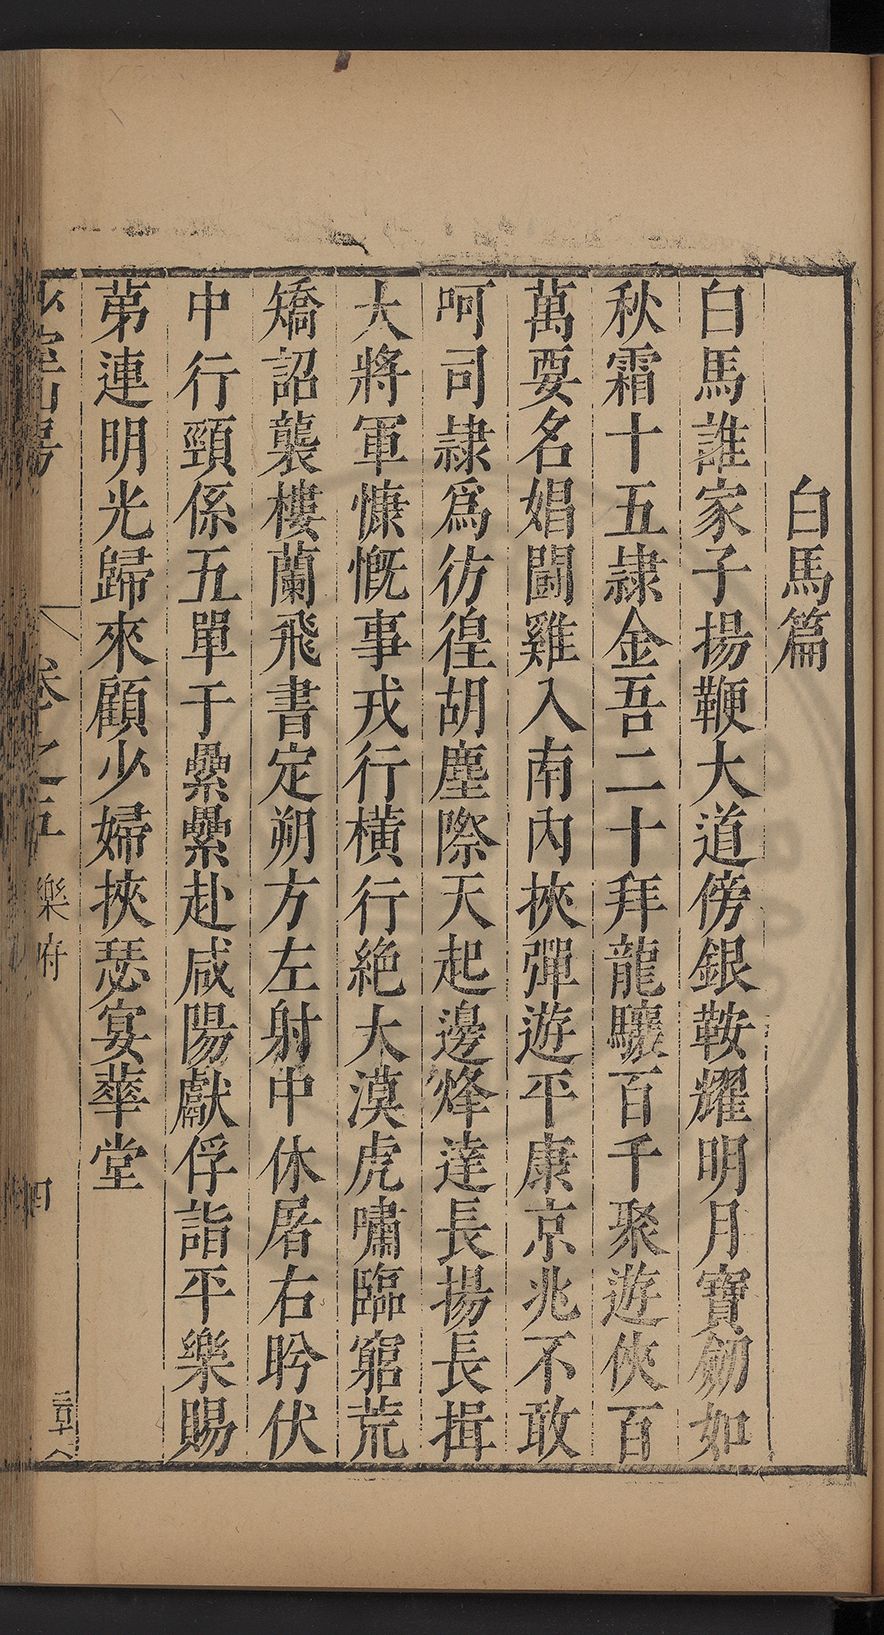 白馬篇
白馬誰家子揚鞭大道傍銀鞍耀明月寶劒如
秋霜十五隷金吾二十拜龍驤百千聚遊俠百
萬要名娼鬪雞入南內挾彈遊平康京兆不敢
呵司隷爲彷徨胡塵際天起邊烽達長揚長揖
大將軍慷慨事戎行橫行絶大漠虎嘯臨窮荒
矯詔襲樓蘭飛書定朔方左射中休屠右盻伏
中行頸係五單于纍纍赴咸陽獻俘詣平樂賜
苐連明光歸來顧少婦挾瑟宴華堂
少室山房 卷之五 樂府 四